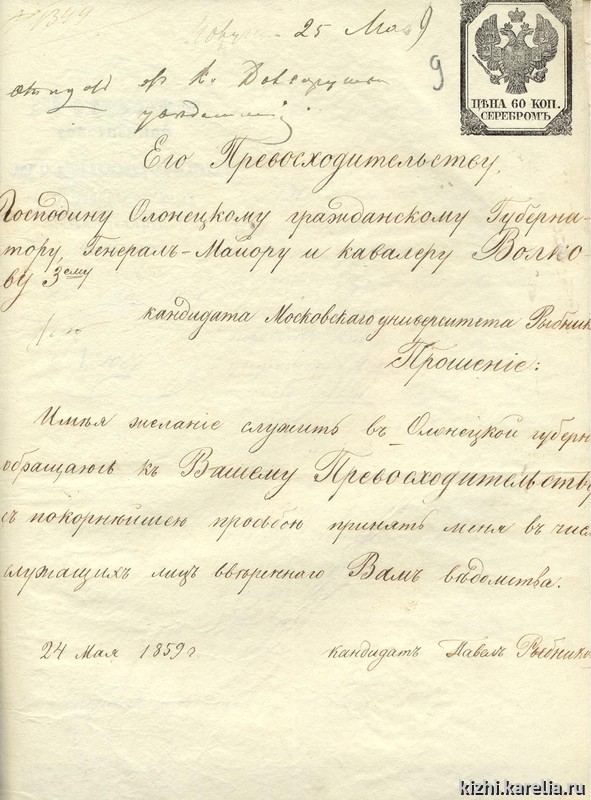 № 1344
25 Мая
9
ЦѢНА 60 КОП.
СЕРЕБРОМЪ
Его Превосходительству,
Господину Олонецкому гражданскому Губерна-
тору, Генералъ-Маіору и кавалеру Волко-
ву 3ему
кандидата Московскаго университета Рыбник
Прошеніе:
Имѣя желаніе служить въ Олонецкой губерн
обращаюсь къ Вашему Превосходительству
съ покорнѣйшею просьбою принять меня въ чис
служащихъ лицъ ввѣреннаго Вамъ вѣдомства.
24 мая 1859 г
кандидатъ Павелъ Рыбнико
kizhi.karelia.ru